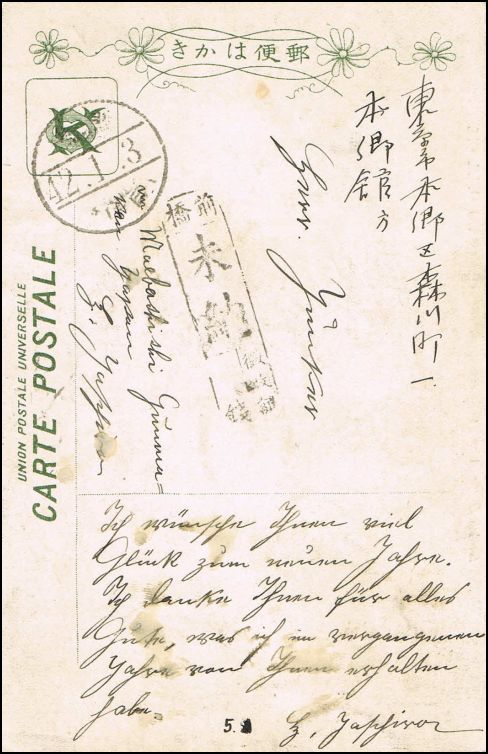 郵便はかき
東京市本郷区森川町一
本郷館方
Herr. Yünker
前橋
未納
42.1.3
in Maebashi-shi Gunma=
ken Japan
UNION POSTALE UNIVERSELLE
CARTE POSTALE
Ich wünsche Ihnen viel
Glück zum neuen Jahre.
Ich danke Ihnen für alles
Gute, was ich im vergangenen
Jahre von Ihnen erhalten
habe.
5.